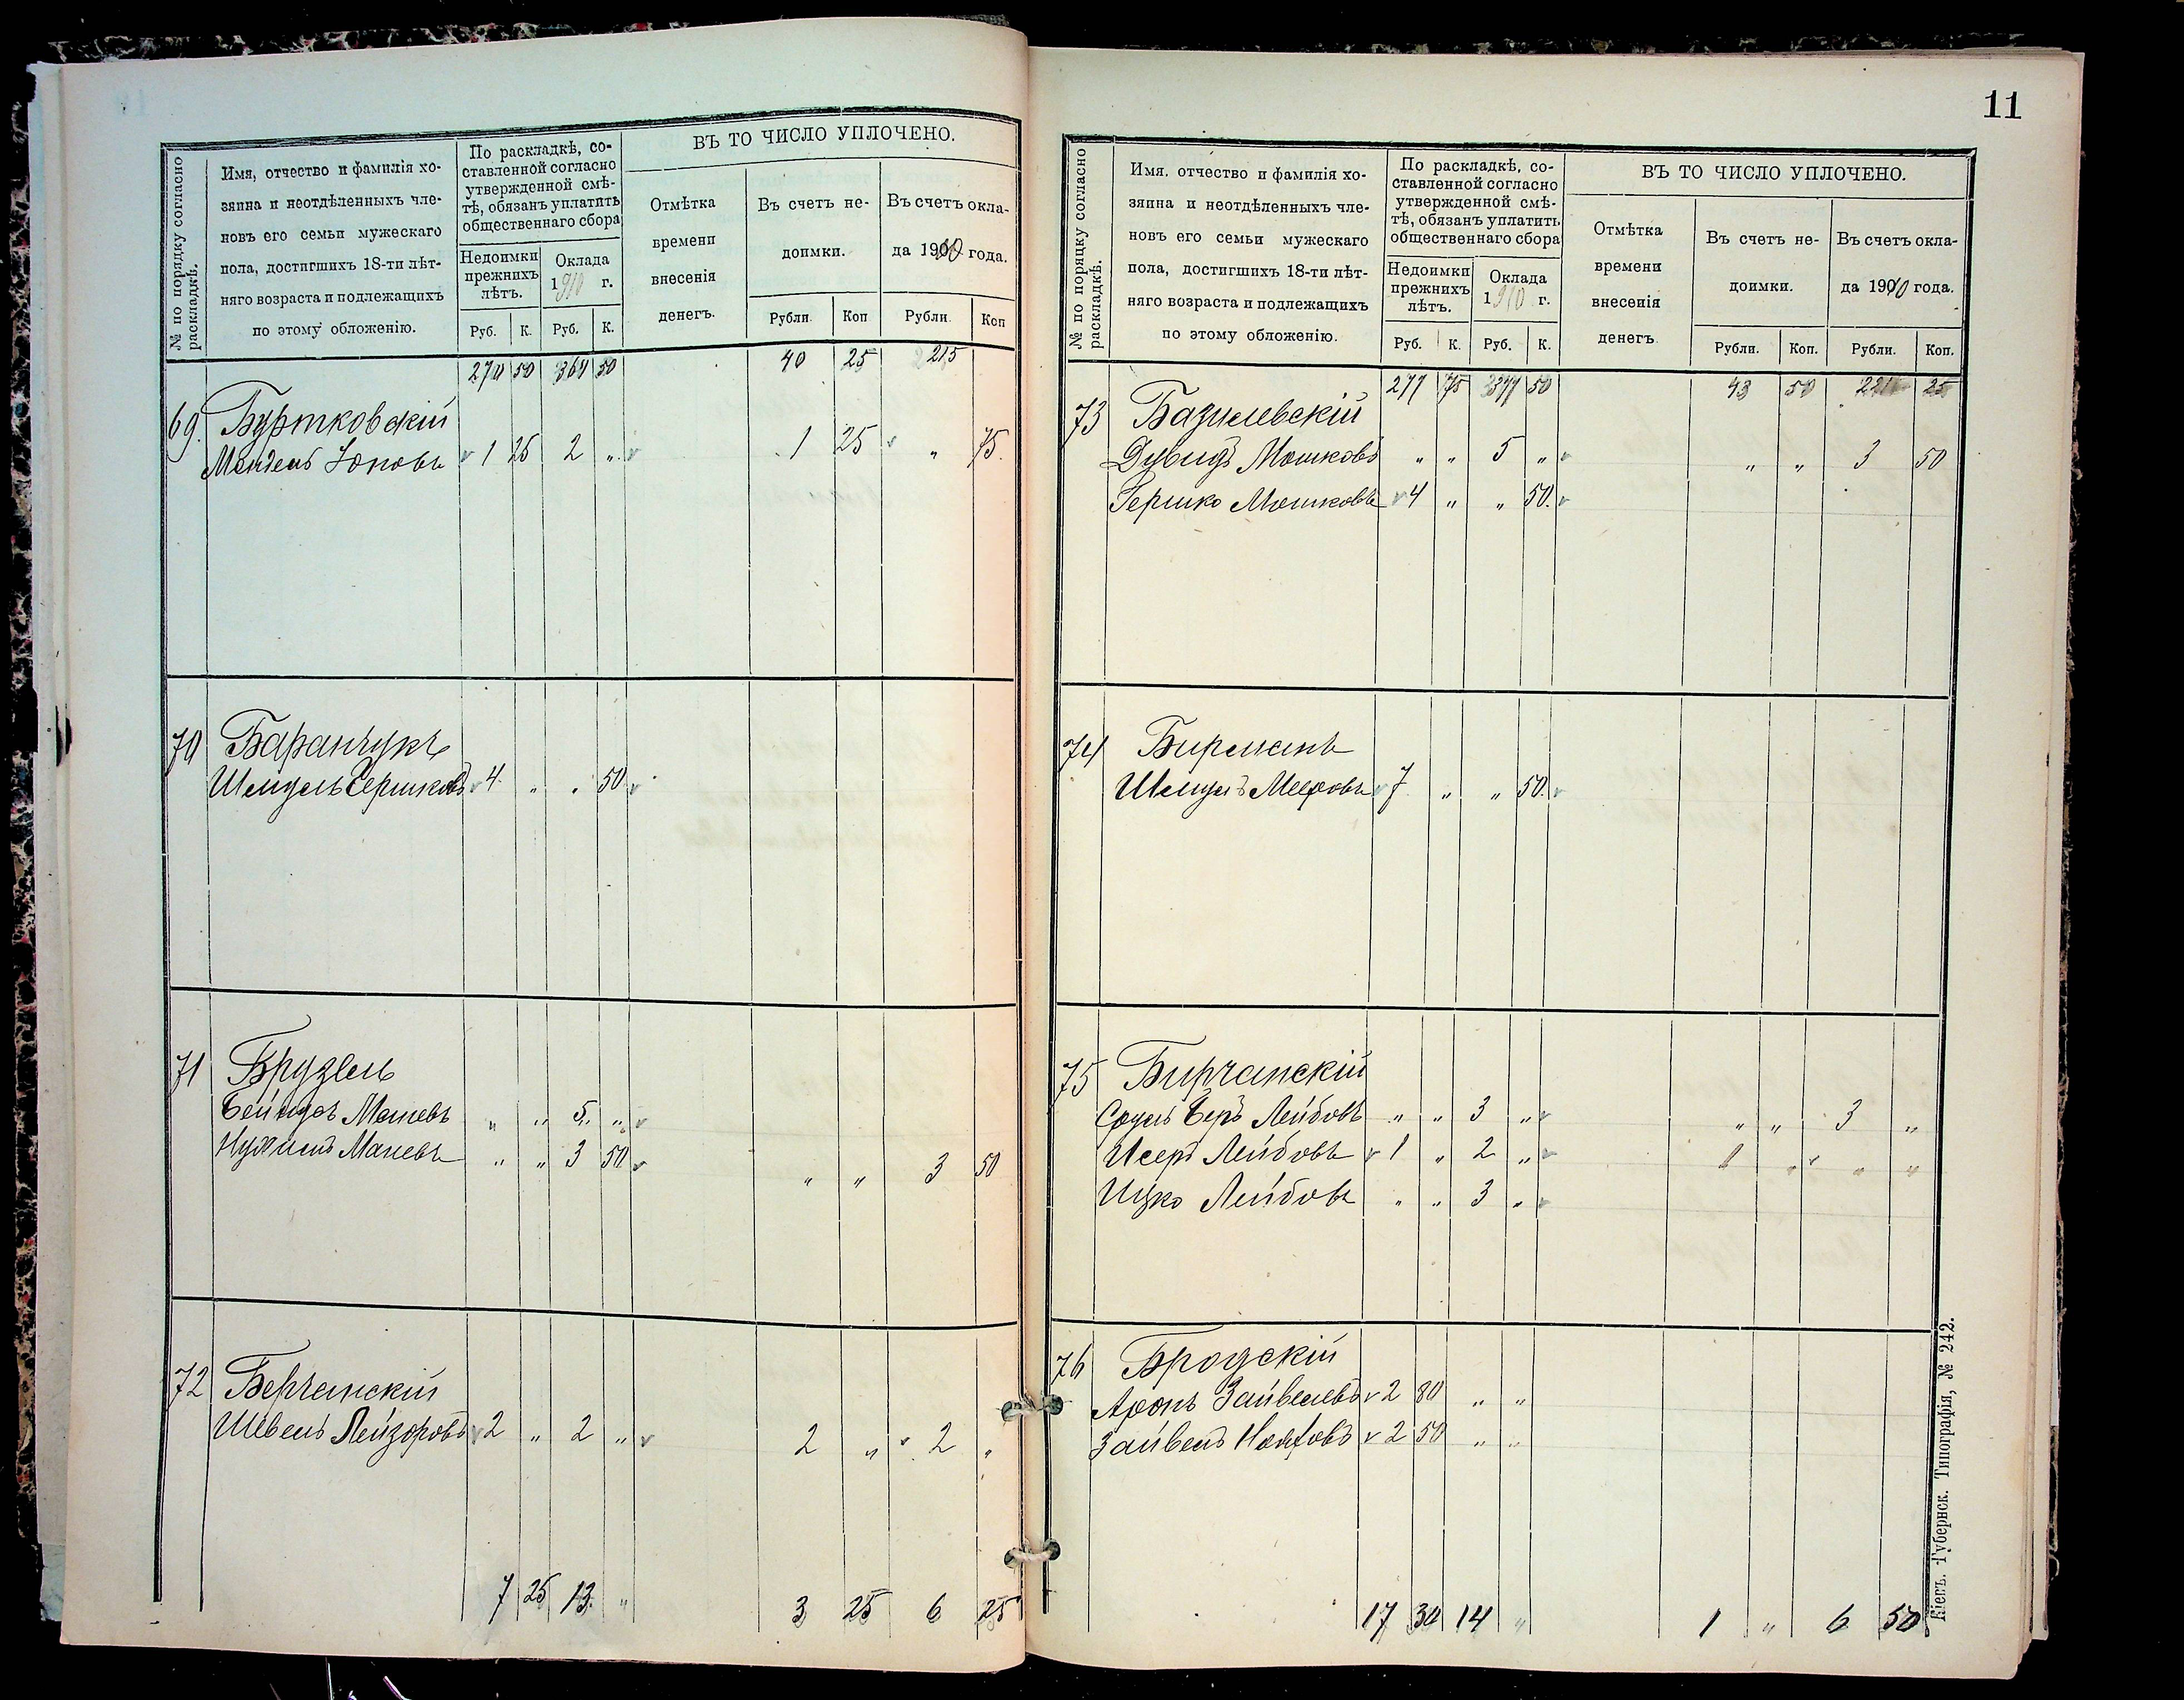 № по порядку согласно раскладкѣ.
Имя, отчество и фамилія хо-
зяина и неотдѣленныхъ чле-
новъ его семьи мужескаго
пола, достигшихъ 18-ти лѣт-
няго возраста и подлежащихъ
по этому обложенію.
По раскладкѣ, со-
ставленной согласно
утвержденной смѣ-
тѣ, обязанъ уплатить
общественнаго сбора
Недоимки
прежнихъ
лѣтъ.
Оклада
1910 г.
Руб. К. Руб. К.
ВЪ ТО ЧИСЛО УПЛОЧЕНО.
Отмѣтка
времени
внесенія
денегъ.
Въ счетъ не-
доимки.
Въ счетъ окла-
да 1910 года.
Рубли. Коп Рубли. Коп
270 50 364 50 40 25 215
69. Буртковскій
Мендель Іоновъ 1 25 2 „ 1 25 „ 75.
70 Баранчукъ
Шмуль Гершковъ 4 „ „ 50
71 Брузель
Бейнусъ Маневъ „ „ 5 „
Нухимъ Маневъ „ „ 3 50 „ „ 3 50
72 Берчанскій
Шевель Лейзоровъ 2 „ 2 „ 2 „ 2 „
7 25 13. „ 3 25 6 25
11
№ по поряцку согласно раскладкѣ.
Имя. отчество и фамилія хо-
зяина и неотдѣленныхъ чле-
новъ его семьи мужескаго
пола, достигшихъ 18-ти лѣт-
няго возраста и подлежащихъ
по этому обложенію.
По раскладкѣ, со-
ставленной согласно
утвержденной смѣ-
тѣ, обязанъ уплатить
общественнаго сбора
Недоимки
прежнихъ
лѣтъ.
Оклада
1910 г.
Руб. К. Руб. К.
ВЪ ТО ЧИСЛО УПЛОЧЕНО.
Отмѣтка
времени
внесенія
денегъ
Въ счетъ не-
доимки.
Въ счетъ окла-
да 1910 года.
Рубли. Коп. Рубли. Коп.
277 75 377 50 43 50 221 25
73 Базилевскій
Дувидъ Мошковъ „ „ 5 „ „ „ 3 50
Гершко Мошковъ 4 „ „ 50.
74 Бирманъ
Шмулъ Мееровъ 7 „ „ 50.
75 Бирчанскій
Сруль Беръ Лейбовъ „ „ 3 „ „ „ 3 „
Исеръ Лейбовъ 1 „ 2 „ 1 „ „ „
Ицко Лейбовъ „ „ 3 „
76 Бродскій
Аронъ Зайвелевъ 2 80 „ „
Зайвель 2 50 „ „
17 30 14 „ 1 „ 6 50
Кіевъ. Губернск. Типографія, № 242.